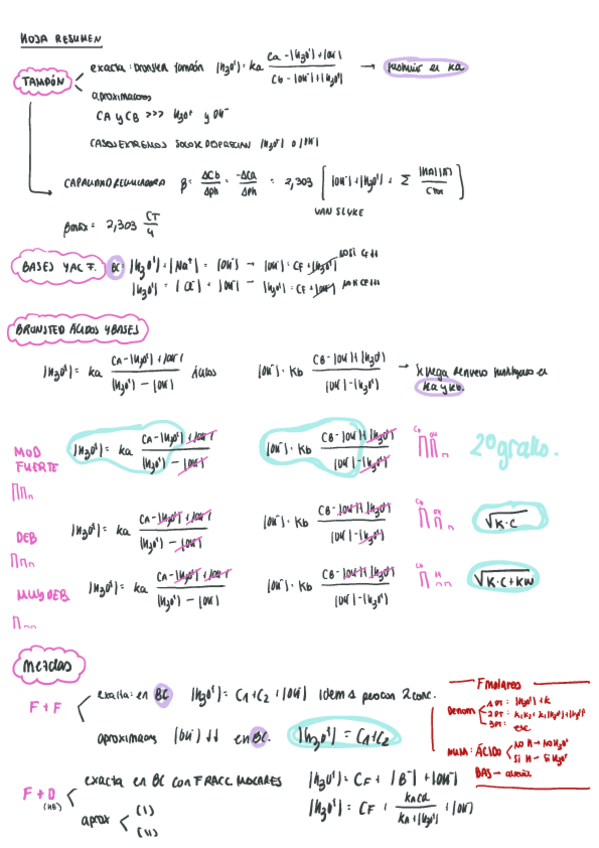 HOJA RESUMEN
TAMPÓN
exacta: bronsted tampón |H3O⁺| = Ka (Ca - |H3O⁺| + |OH⁻|) / (Cb - |OH⁻| + |H3O⁺|) →
aproximacions
CA y CB >>> H3O⁺ y OH⁻
CASOS EXTREMOS SOLO SE DEPRECIAN |H3O⁺| O |OH⁻|
CAPACIDAD REGULADORA β = ΔCb/Δph = -ΔCa/Δph = 2,303 [ |OH⁻| + |H3O⁺| + Σ |HA||A⁻| / Ctot ]
VAN SLYKE
βmax = 2,303 CT/4
BASES Y AC F. BC: |H3O⁺| + |Na⁺| = |OH⁻| → |OH⁻| = CF + |H3O⁺|
|H3O⁺| = |Cl⁻| + |OH⁻| → |H3O⁺| = CF + |OH⁻|
BRONSTED ÁCIDOS Y BASES
|H3O⁺| = Ka (CA - |H3O⁺| + |OH⁻|) / (|H3O⁺| - |OH⁻|) ácidos |OH⁻| = Kb (CB - |OH⁻| + |H3O⁺|) / (|OH⁻| - |H3O⁺|) →
Ka y Kb.
MOD FUERTE |H3O⁺| = Ka (CA - |H3O⁺| + |OH⁻|) / (|H3O⁺| - |OH⁻|) |OH⁻| = Kb (CB - |OH⁻| + |H3O⁺|) / (|OH⁻| - |H3O⁺|) 2º grado.
DEB |H3O⁺| = Ka (CA - |H3O⁺| + |OH⁻|) / (|H3O⁺| - |OH⁻|) |OH⁻| = Kb (CB - |OH⁻| + |H3O⁺|) / (|OH⁻| - |H3O⁺|) √K·C
MUY DEB |H3O⁺| = Ka (CA - |H3O⁺| + |OH⁻|) / (|H3O⁺| - |OH⁻|) |OH⁻| = Kb (CB - |OH⁻| + |H3O⁺|) / (|OH⁻| - |H3O⁺|) √K·C+Kw
Mezclas
F + F
exacta: en BC |H3O⁺| = C1 + C2 + |OH⁻| idem 1 pero con 2 conc.
aproximacions |OH⁻| ↓↓ en BC. |H3O⁺| = C1 + C2
F molares
Denom
1 PT: |H3O⁺| + K
2 PT: K1K2 + K1|H3O⁺| + |H3O⁺|²
3 PT: etc
NUM: ÁCIDO
NO H → NO H3O⁺
SI H → SI H3O⁺
BAS →
F + D (HB)
exacta en BC con FRACC MOLARES |H3O⁺| = CF + |B⁻| + |OH⁻|
aprox (I) (II) |H3O⁺| = CF + KaCd / (Ka + |H3O⁺|) + |OH⁻|